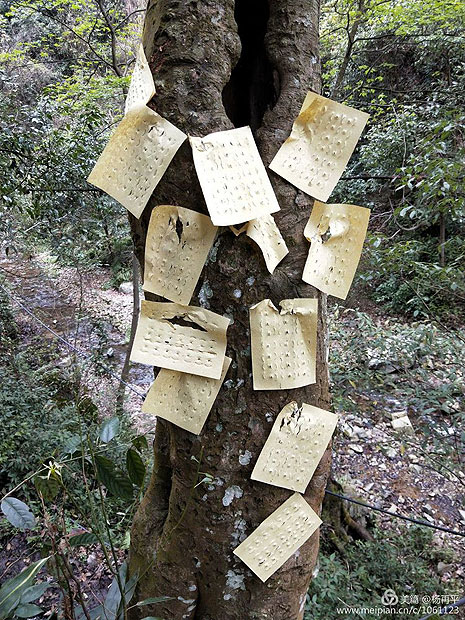 美篇 @杨再平
www.meipian.cn/c/1061123